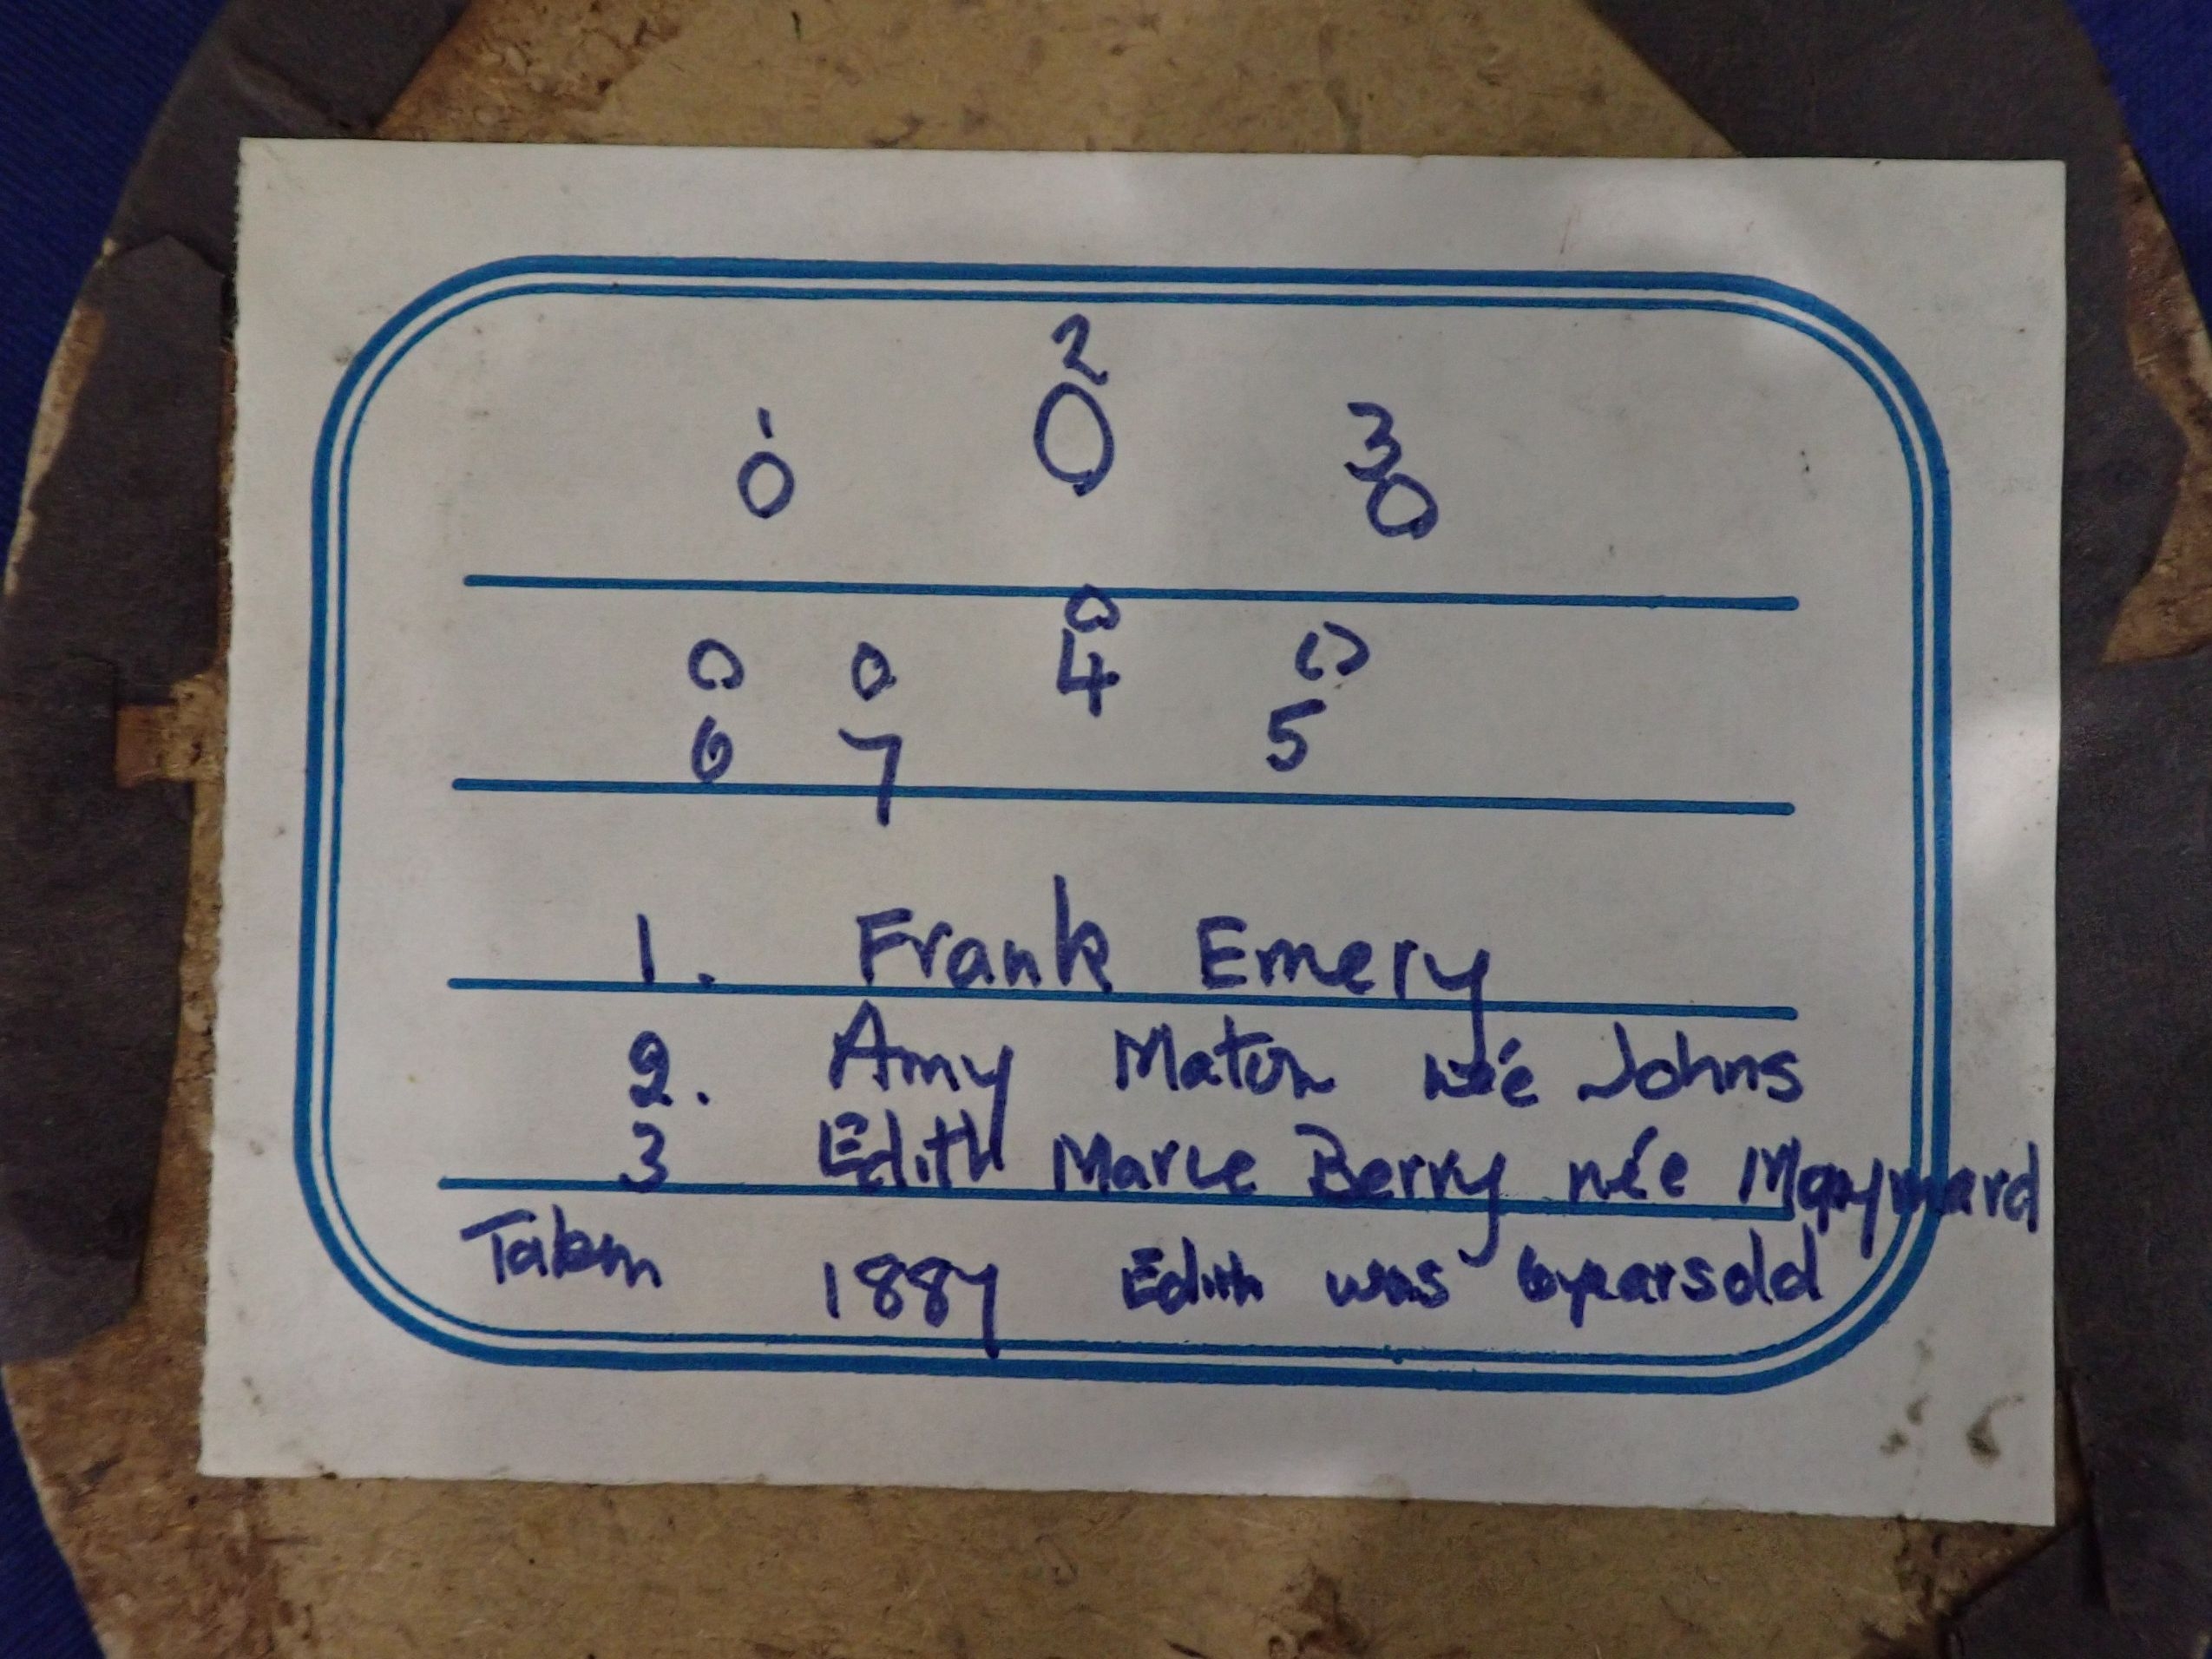 2
1 3
4
6 7 5
1. Frank Emery
2. Amy Maton née Johns
3 Edith Marie Berry née Maynard
Taken 1887 Edith was 6 years old